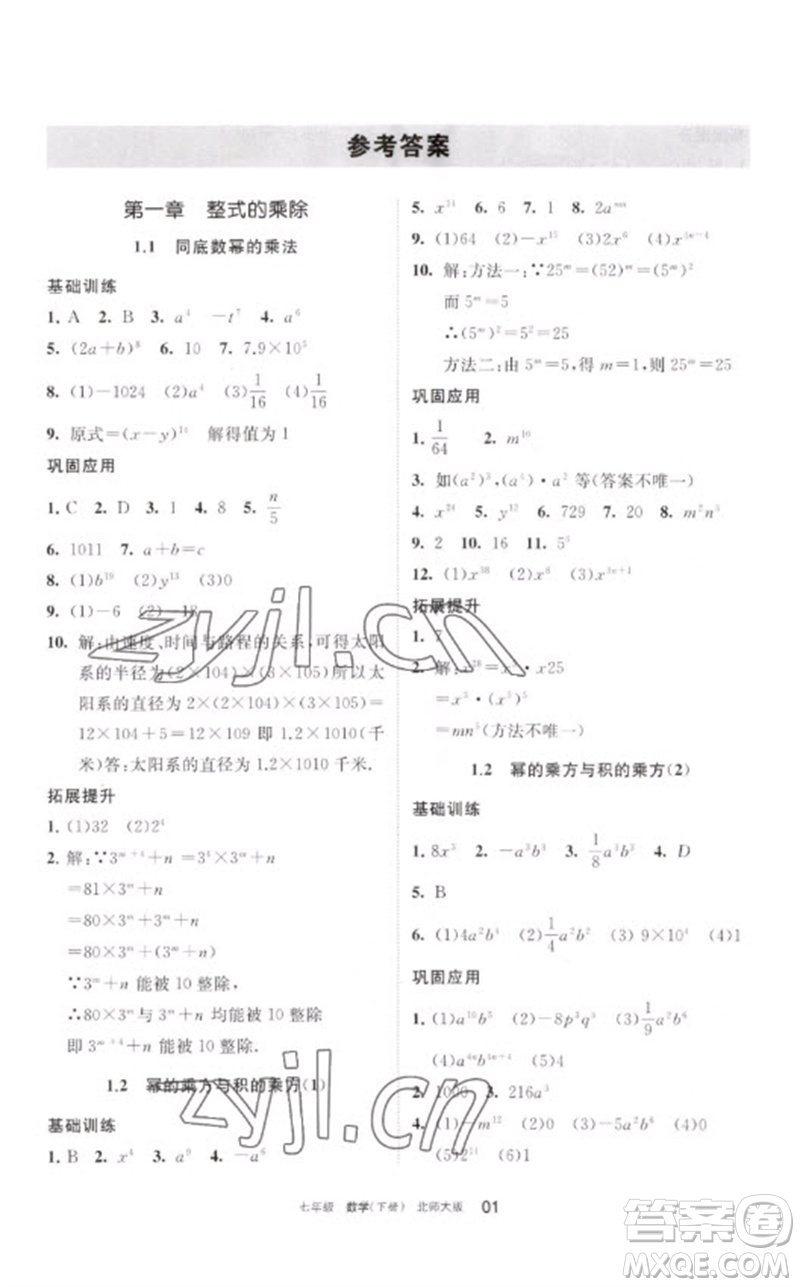 参考答案
第一章 整式的乘除
1.1 同底数幂的乘法
基础训练
1. A 2. B 3. a⁴ －t⁷ 4. a⁶
5. (2a＋b)⁸ 6. 10 7. 7.9×10⁵
8. (1)－1024 (2)a⁴ (3)1/16 (4)1/16
9. 原式＝(x－y) 解得值为 1
巩固应用
1. C 2. D 3. 1 4. 8 5. n/5
6. 1011 7. a＋b＝c
8. (1)b¹⁹ (2)y¹³ (3)0
9. (1)－6 (2)－18
10. 解:由速度、时间与路程的关系,可得太阳
系的半径为(2×104)×(3×105)所以太
阳系的直径为 2×(2×104)×(3×105)＝
12×104＋5＝12×109 即 1.2×1010(千
米)答:太阳系的直径为 1.2×1010 千米.
拓展提升
1. (1)32 (2)2⁴
2. 解:∵3ᵐ⁺⁴＋n＝3⁴×3ᵐ＋n
＝81×3ᵐ＋n
＝80×3ᵐ＋3ᵐ＋n
＝80×3ᵐ＋(3ᵐ＋n)
∵3ᵐ＋n 能被 10 整除,
∴80×3ᵐ与 3ᵐ＋n 均能被 10 整除,
即 3ᵐ⁺⁴＋n 能被 10 整除.
1.2 幂的乘方与积的乘方(1)
基础训练
1. B 2. x⁴ 3. a⁹ 4. －a⁶
5. x 6. 6 7. 1 8. 2aᵐⁿ
9. (1)64 (2)－x¹⁵ (3)5x¹⁰ (4)x
10. 解:方法一:∵25ᵐ＝(52)ᵐ＝(5ᵐ)²
而 5ᵐ＝5
∴(5ᵐ)²＝5²＝25
方法二:由 5ᵐ＝5,得 m＝1,则 25ᵐ＝25
巩固应用
1. 1/64 2. m¹⁰
3. 如(a²)³,(a⁵)·a² 等(答案不唯一)
4. x²⁴ 5. y¹² 6. 729 7. 20 8. m²n³
9. 2 10. 16 11. 5⁵
12. (1)x³⁸ (2)x⁸ (3)x³ⁿ⁺⁴
拓展提升
1. 7
2. 解:x²⁸＝x³·x25
＝x³·(x⁵)⁵
＝mn⁵(方法不唯一)
1.2 幂的乘方与积的乘方(2)
基础训练
1. 8x³ 2. －a³b³ 3. 1/8a³b³ 4. D
5. B
6. (1)4a²b⁴ (2)1/4a²b⁶ (3)9×10⁴ (4)1
巩固应用
1. (1)a¹⁰b⁵ (2)－8p³q³ (3)1/9a²b⁶
(4)a⁴ⁿb (5)4
2. 1000 3. 216a³
4. (1)－m¹² (2)0 (3)－5a²b⁶ (4)0
(5)2¹¹ (6)1
七年级 数学(下册) 北师大版 01
zyjl.cn
zyjl.cn
答案卷
MXQE.COM